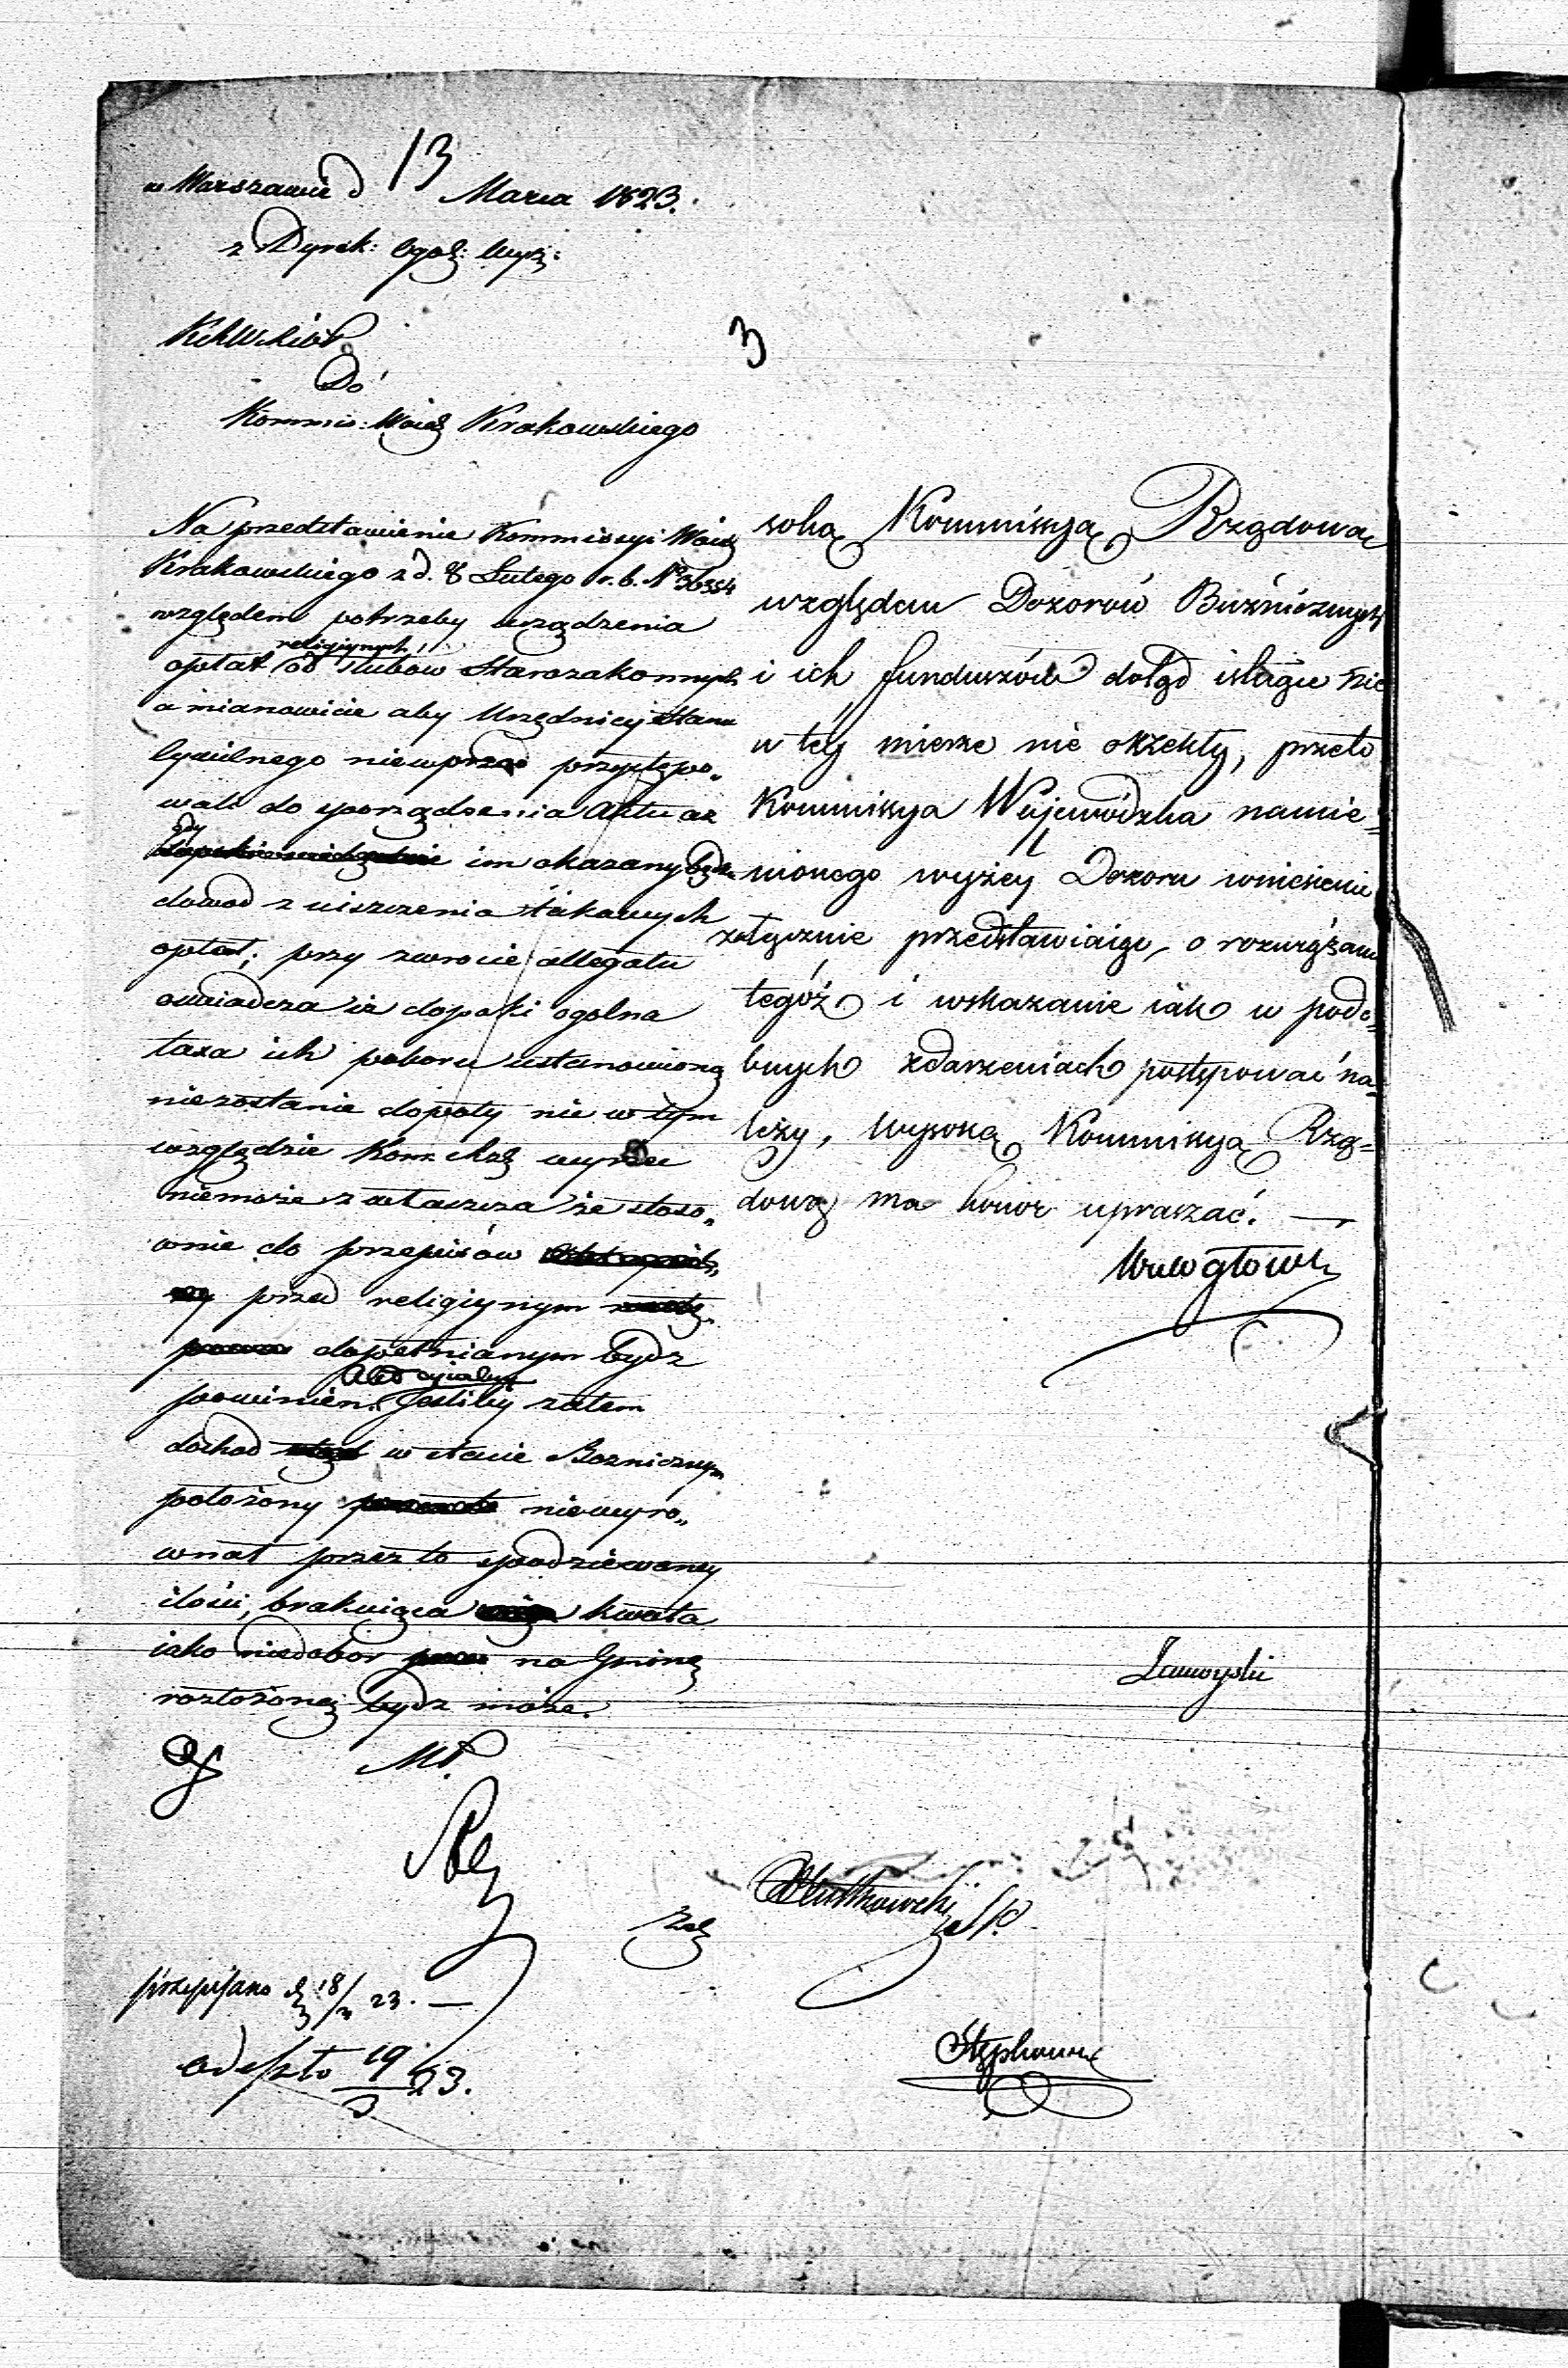 w Warszawie d 13 Marca 1823.
z Dyrek: Ogol: Wyz:
Do
Kommis: Woiew Krakowskiego
Na przedstawienie Kommissyi Woiew
Krakowskiego z d. 8 Lutego r. b. No 36354
względem potrzeby urządzenia
religiynych
opłat od slubow Starozakonnych
a mianowicie aby Urzędnicy Stanu
Cywilnego niewprzod przystępo„
wali do sporządzenia Aktu aż
gdy
im okazany będzie
dowod z uiszczenia takowych
opłat; przy zwrocie allegatu
oswiadcza iż dopoki ogolna
taxa ich poboru ustanowioną
niezostanie dopoty nic w tym
względzie Kom
niemoże zwłaszcza że stoso„
wnie do przepisów
przed religiynym
dopełnianym bydz
Akt cywilny
powinien. Jesliby zatem
dochod w etacie Bozniczym
położony niewyro„
wnał przez to spodziewaney
ilości, brakuiąca kwota
iako niedobor na Gminę
rozłożoną bydz może.
przepisano d 18/3 23. —
odeszło 19/3 23.
3
soką Kommissyą Rządową
względem Dozorów Buźniczych
i ich funduszów dotąd istnące nic
w téy mierze nie orzekły, przeto
Kommissya Wojewódzka namie=
nionego wyżey Dozoru wniesienie
załącznie przedstawiaiąc, o rozwiązanie
tegóż i wskazanie iak w podo=
bnych zdarzeniach postępować na=
leży, wysoką Kommissyą Rzą=
dową ma honor upraszać. —
Wielogłowski
Zamoyski